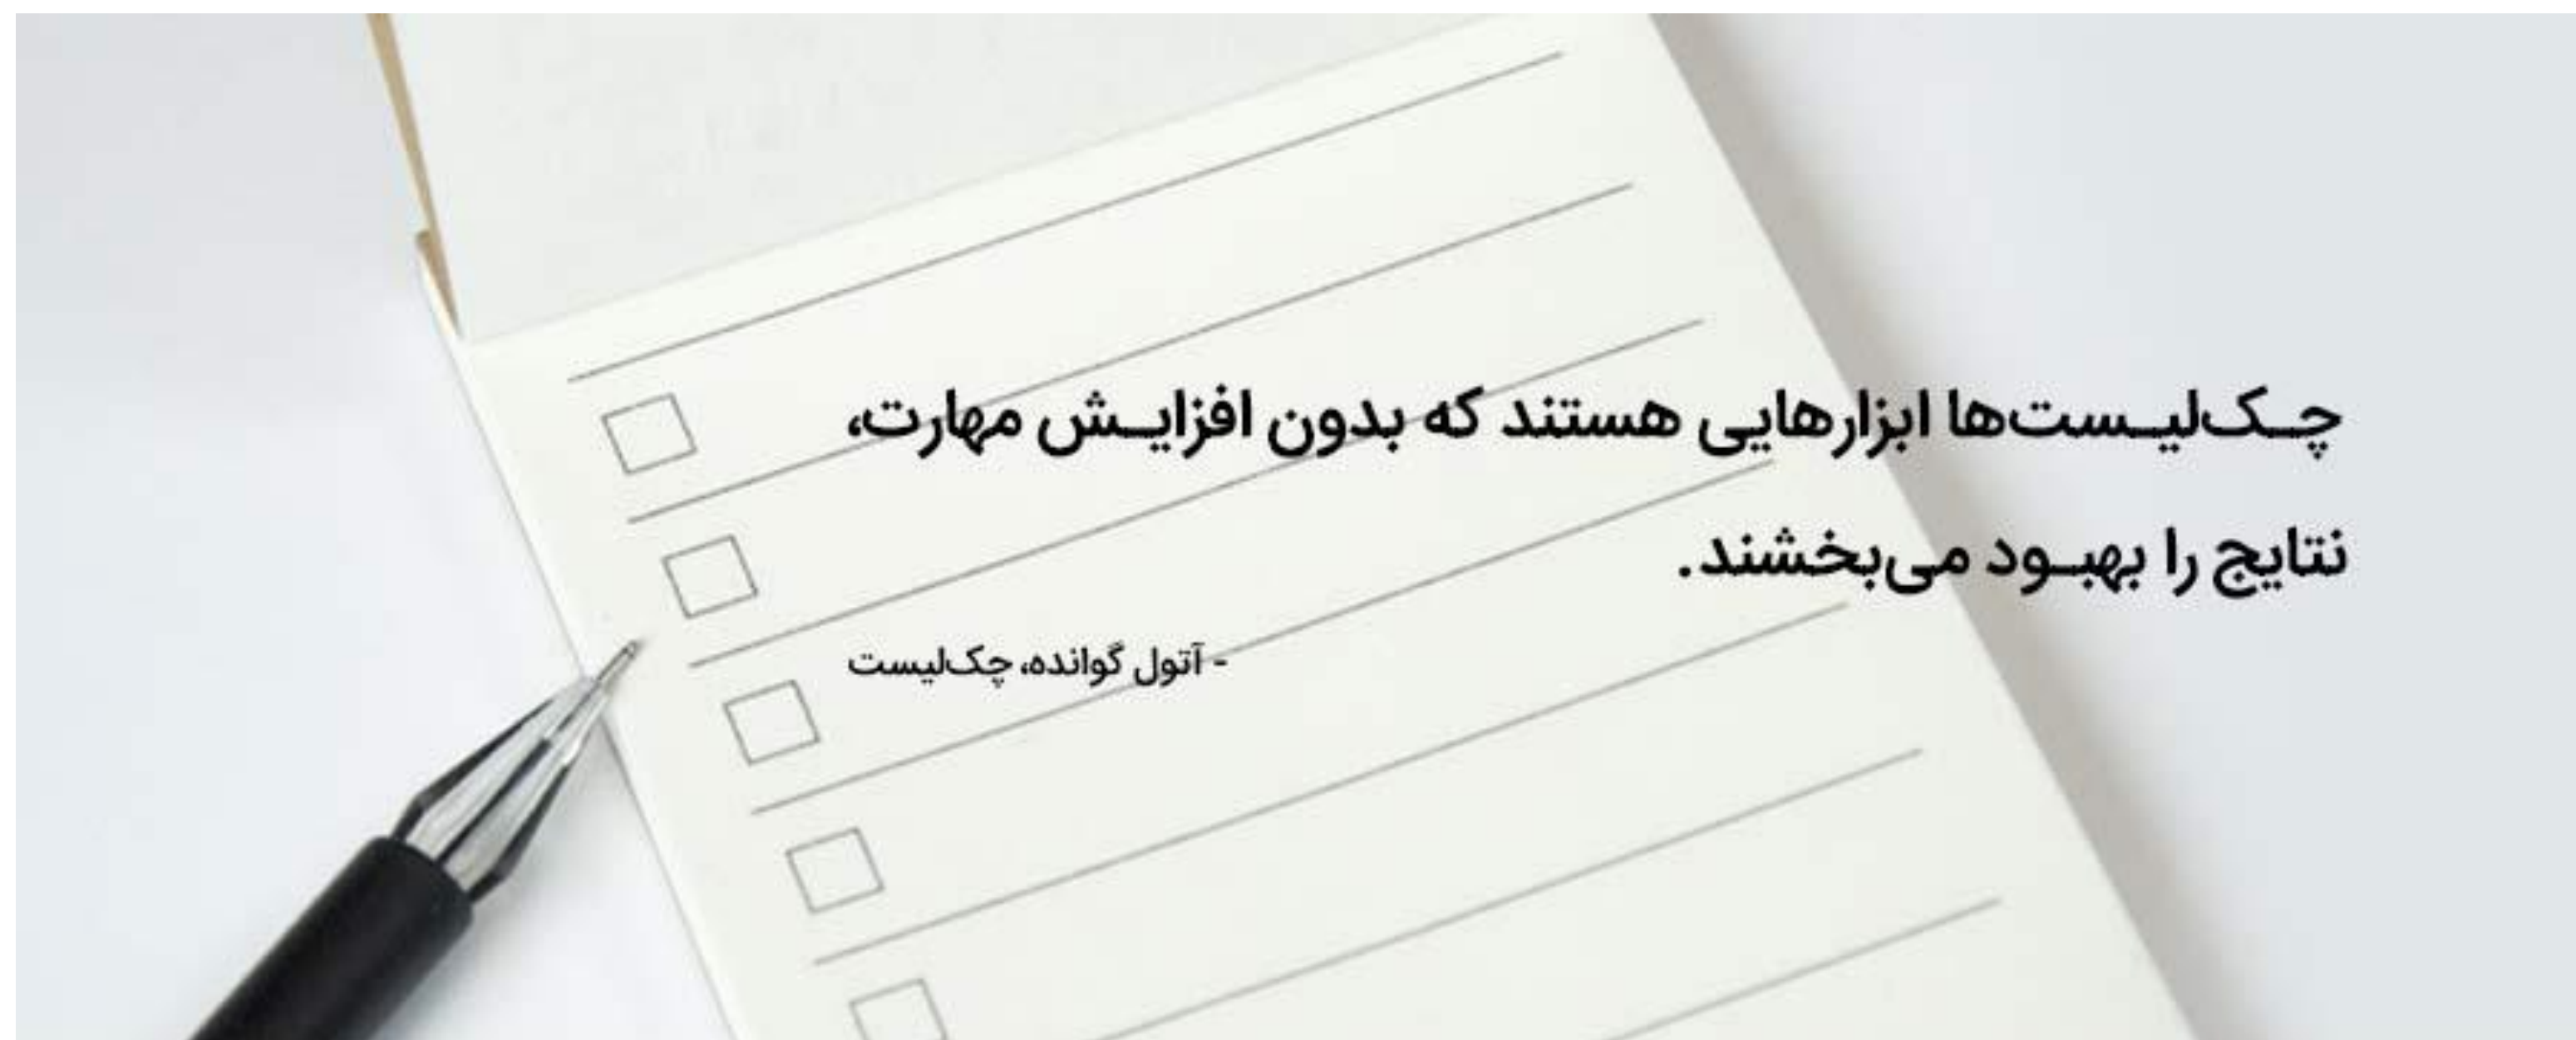 چک‌لیست‌ها ابزارهایی هستند که بدون افزایش مهارت،
نتایج را بهبود می‌بخشند.
- آتول گوانده، چک‌لیست